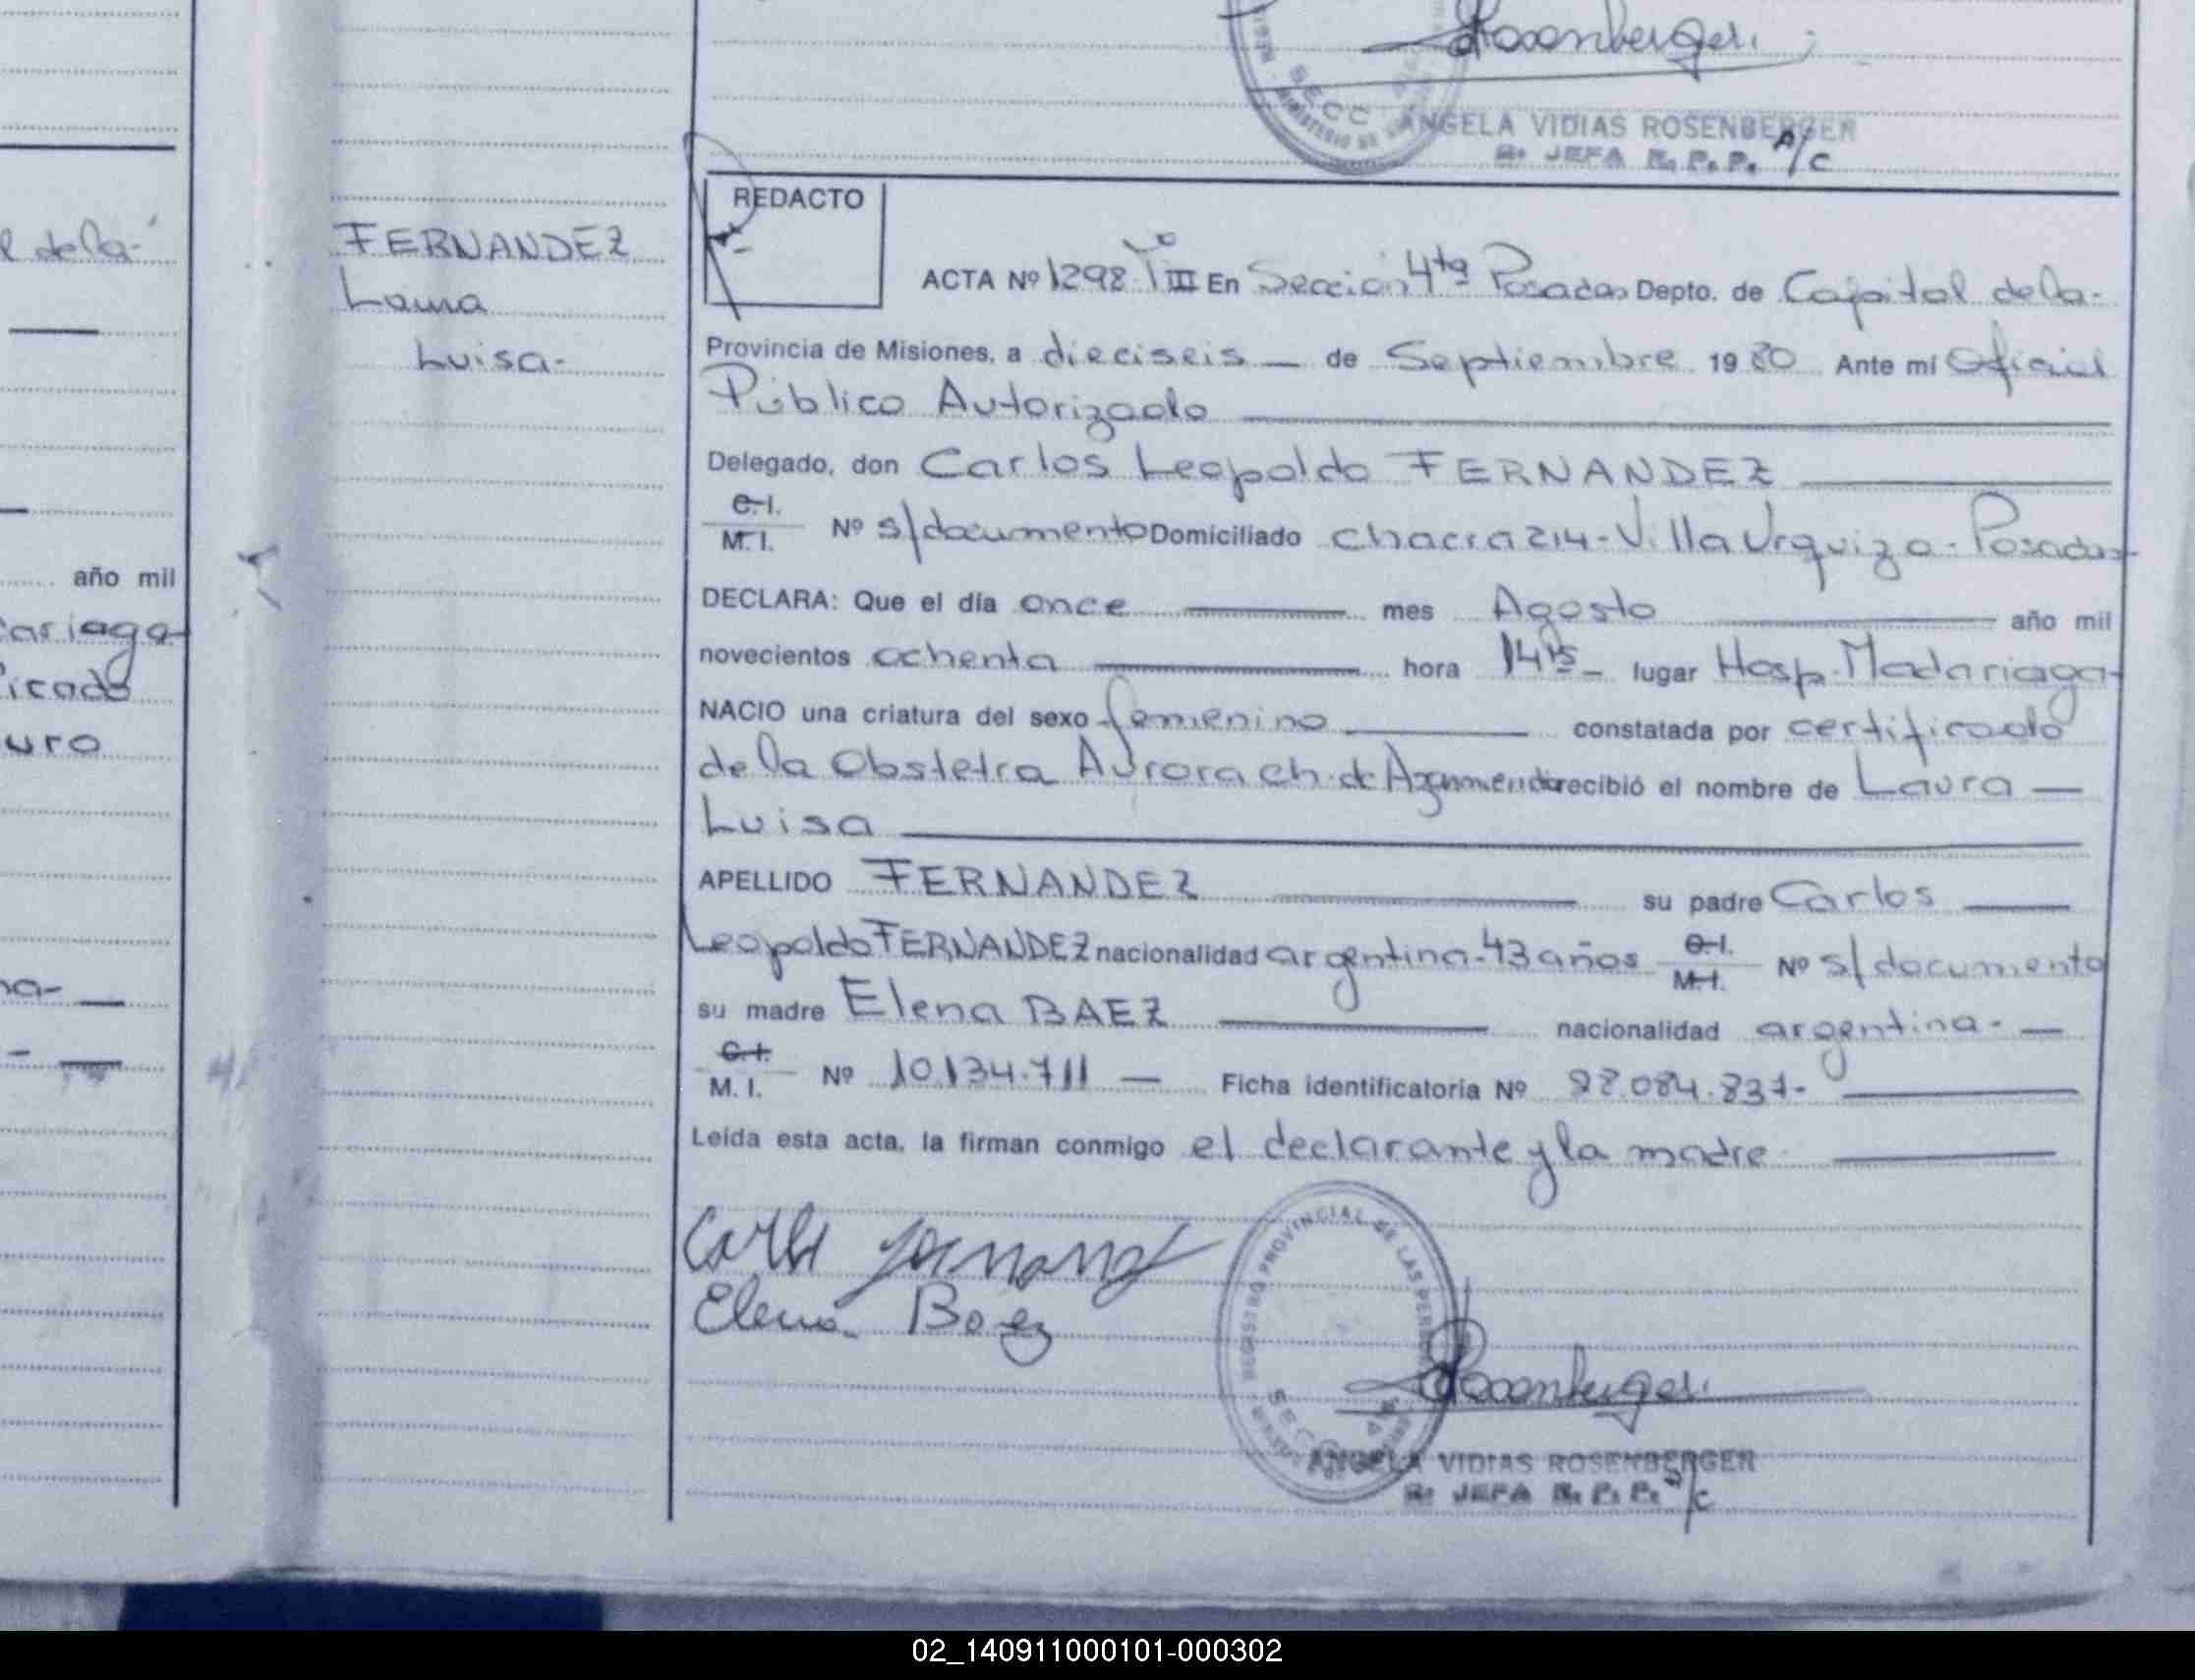 Rosenberger
SECC
MINISTERIO DE
ANGELA VIDIAS ROSENBERGER
2a JEFA R. P. P. A/C
REDACTO
l de la-
FERNANDEZ
Laura
Luisa-
ACTA Nº 1298 Tº III En Sección 4ta Posadas Depto. de Capital de la-
Provincia de Misiones, a dieciseis — de Septiembre 1980 Ante mi Oficial
Público Autorizado
Delegado, don Carlos Leopoldo FERNANDEZ
C.I.
M.I. Nº s/documento Domiciliado Chacra 214-Villa Urquiza-Posadas-
año mil
DECLARA: Que el día once mes Agosto año mil
novecientos ochenta hora 14hs- lugar Hosp. Madariaga-
NACIO una criatura del sexo femenino constatada por certificado
de la Obstetra Aurora ch. de recibió el nombre de Laura —
Luisa
APELLIDO FERNANDEZ su padre Carlos
Leopoldo FERNANDEZ nacionalidad argentina-43 años C.I. M.I. Nº s/documento
su madre Elena BAEZ nacionalidad argentina- —
C.I.
M. I. Nº 10.134.711 — Ficha identificatoria Nº 28.084.837-
Leída esta acta, la firman conmigo el declarante y la madre
Carlos Fernandez
Elena Baez
REGISTRO PROVINCIAL DE LAS PERSONAS
SECC 4a
Rosenberger
ANGELA VIDIAS ROSENBERGER
2a JEFA R. P. P. A/C
02_140911000101-000302